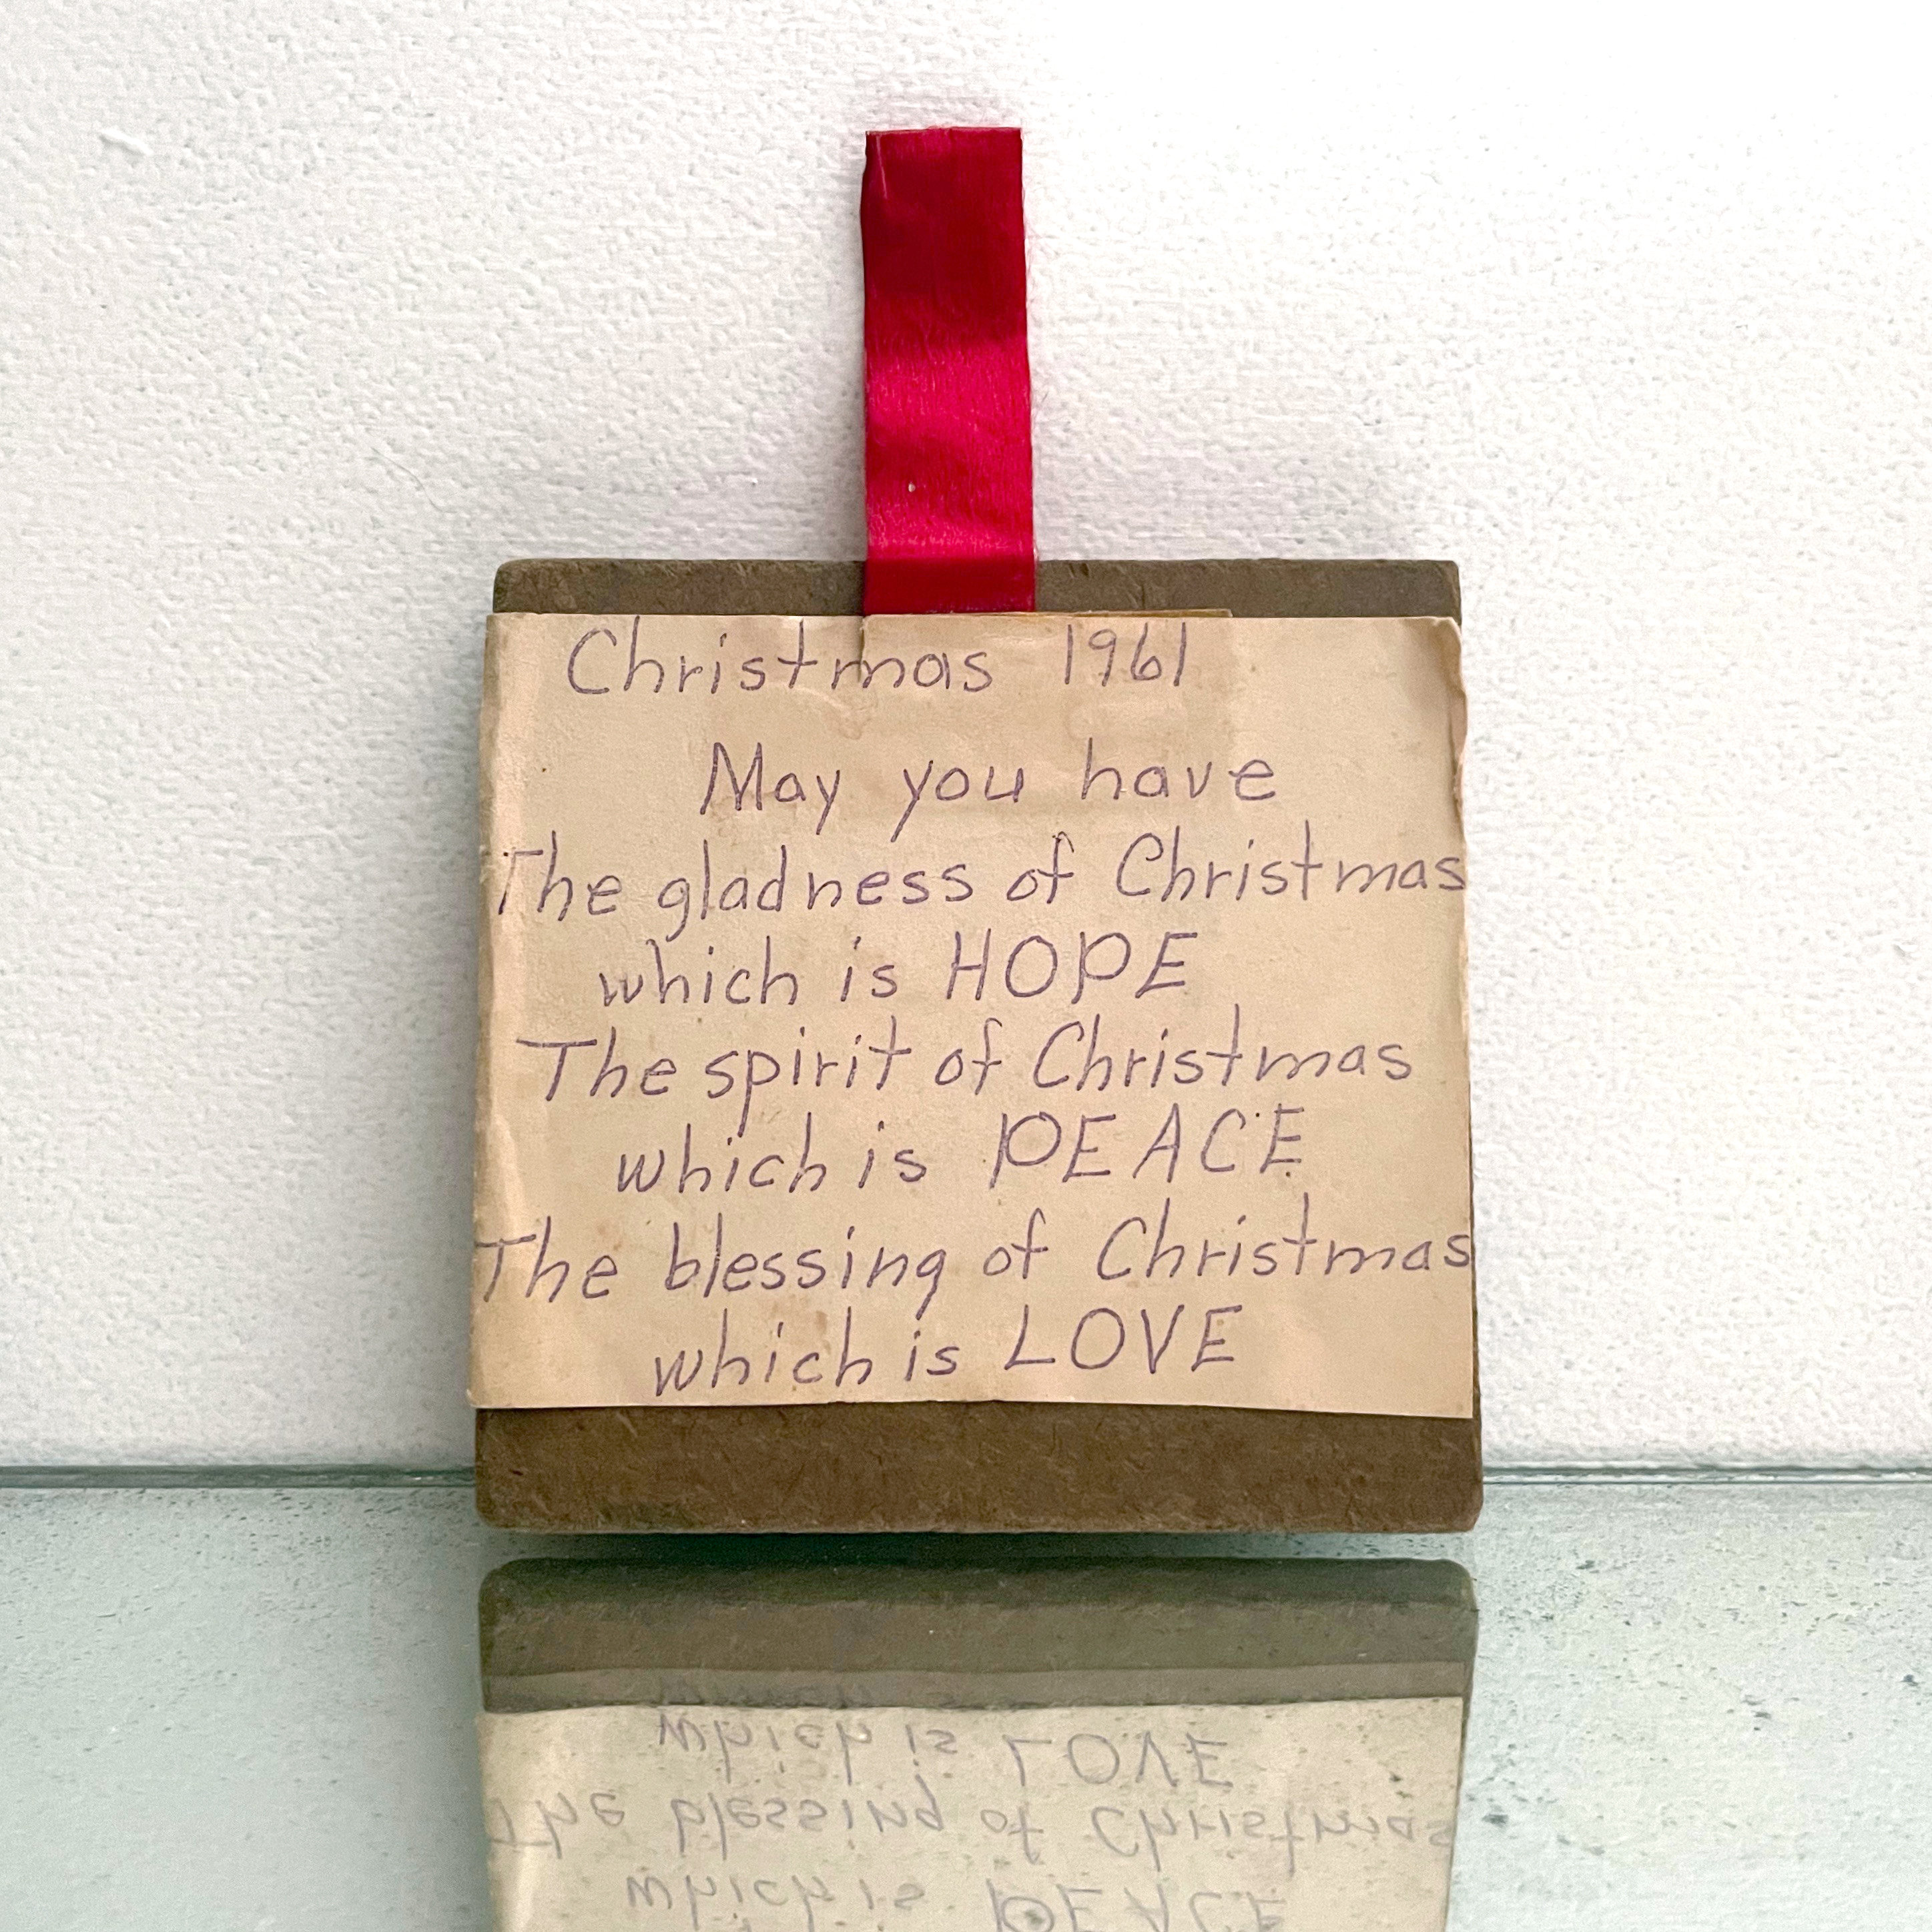 Christmas 1961
May you have
The gladness of Christmas
which is HOPE
The spirit of Christmas
which is PEACE
The blessing of Christmas
which is LOVE